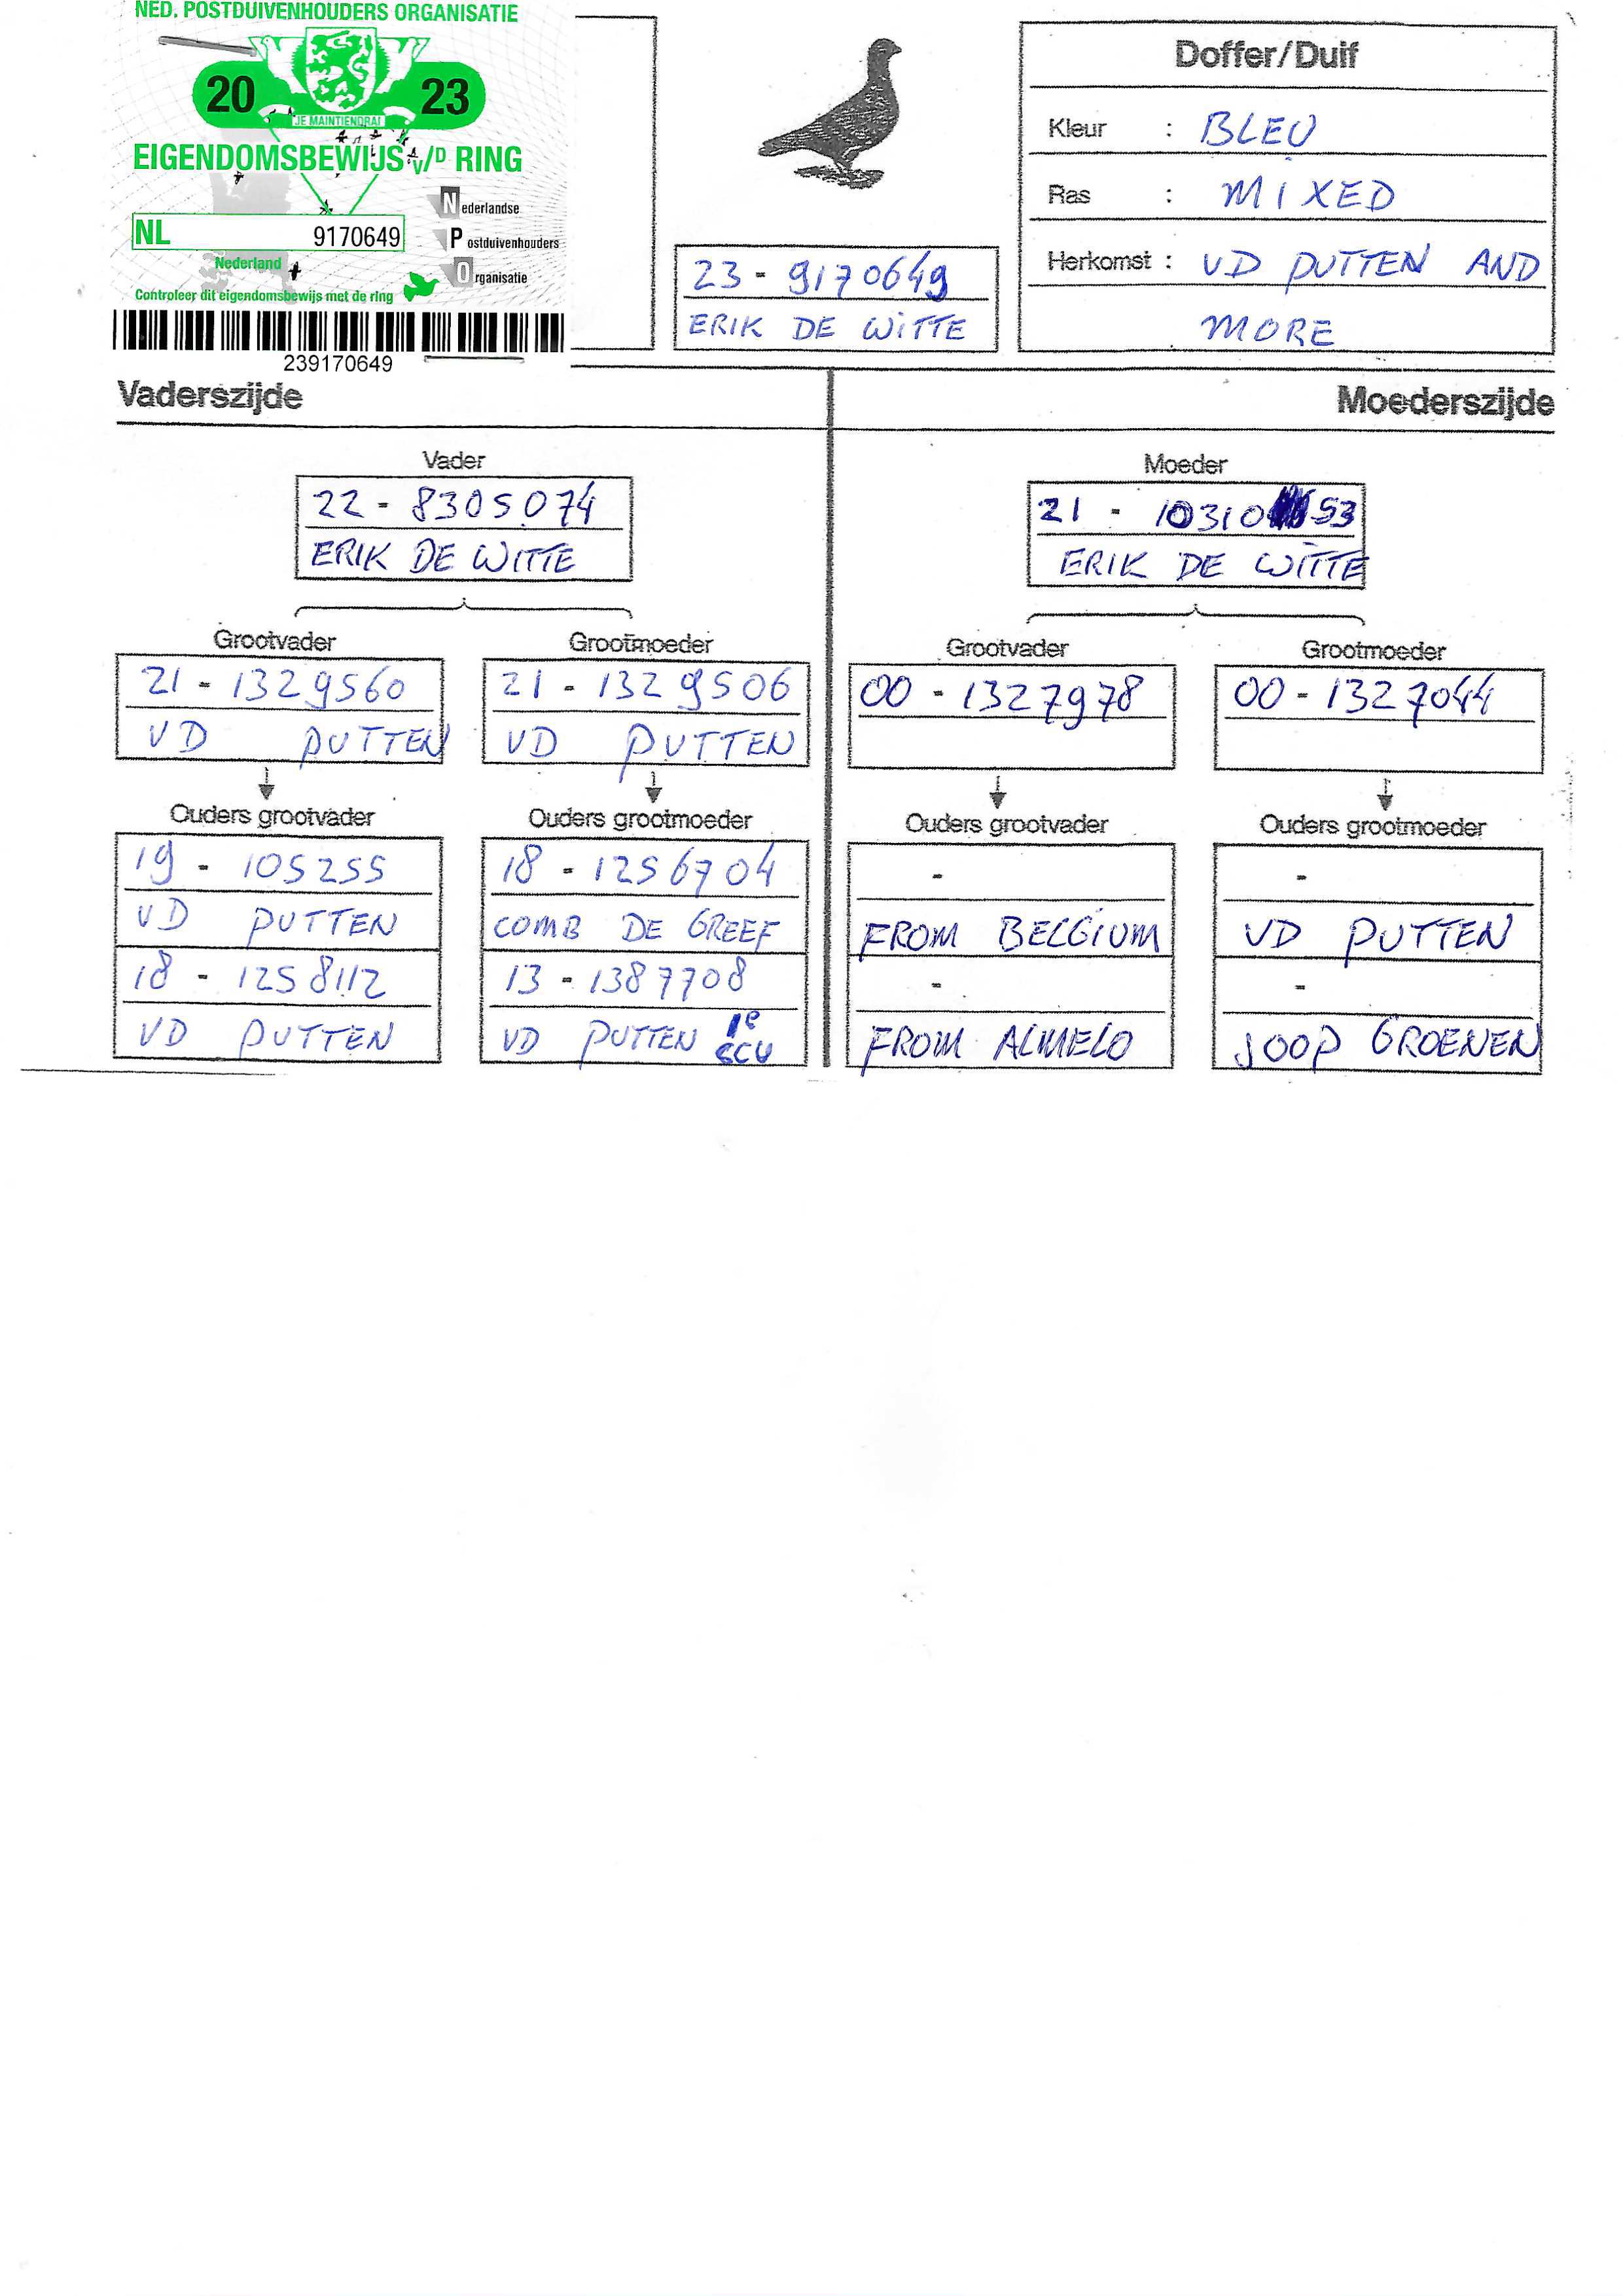 NED. POSTDUIVENHOUDERS ORGANISATIE
20 23
JE MAINTIENDRAI
EIGENDOMSBEWIJS v/D RING
NL 9170649
Nederland
Nederlandse
Postduivenhouders
Organisatie
Controleer dit eigendomsbewijs met de ring
239170649
23 - 9170649
ERIK DE WITTE
Doffer/Duif
Kleur : BLEU
Ras : MIXED
Herkomst : VD PUTTEN AND
MORE
Vaderszijde
Moederszijde
Vader
22 - 8305074
ERIK DE WITTE
Moeder
21 - 10310 53
ERIK DE WITTE
Grootvader
21 - 1329560
VD PUTTEN
Grootmoeder
21 - 1329506
VD PUTTEN
Grootvader
00 - 1327978
Grootmoeder
00 - 1327044
Ouders grootvader
19 - 105255
VD PUTTEN
18 - 1258112
VD PUTTEN
Ouders grootmoeder
18 - 1256704
COMB DE GREEF
13 - 1387708
VD PUTTEN 1e
Ouders grootvader
-
FROM BELGIUM
-
FROM ALMELO
Ouders grootmoeder
-
VD PUTTEN
-
JOOP GROENEN